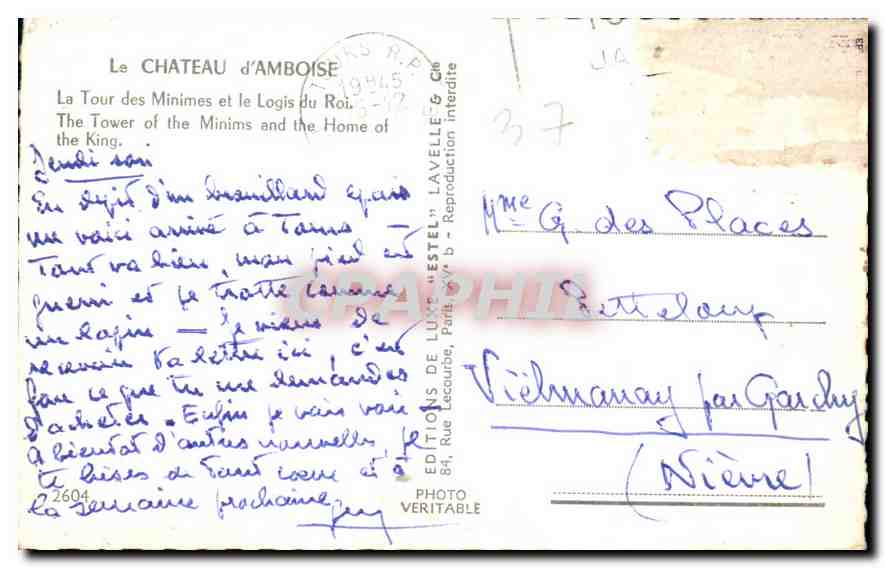 Le CHATEAU d'AMBOISE
La Tour des Minimes et le Logis du Roi.
The Tower of the Minims and the Home of
the King.
Jeudi soir
En dépit d'un brouillard épais
me voici arrivé à Tours —
Tout va bien, mon pied est
guéri et je trotte comme
un lapin — Je viens de
recevoir ta lettre ici, c'est
ce que tu me demandes
d'acheter. Enfin je vais voir
A bientôt d'autres nouvelles, je
te bises de tout coeur et à
la semaine prochaine
2604
PHOTO
VERITABLE
EDITIONS DE LUXE "ESTEL" LAVELLE & Cie
84, Rue Lecourbe, Paris XVe b - Reproduction interdite
TOURS R.P.
1945
37
Mme G. des Places
Vielmanay par Garchy
(Nièvre)
CPAPHIL